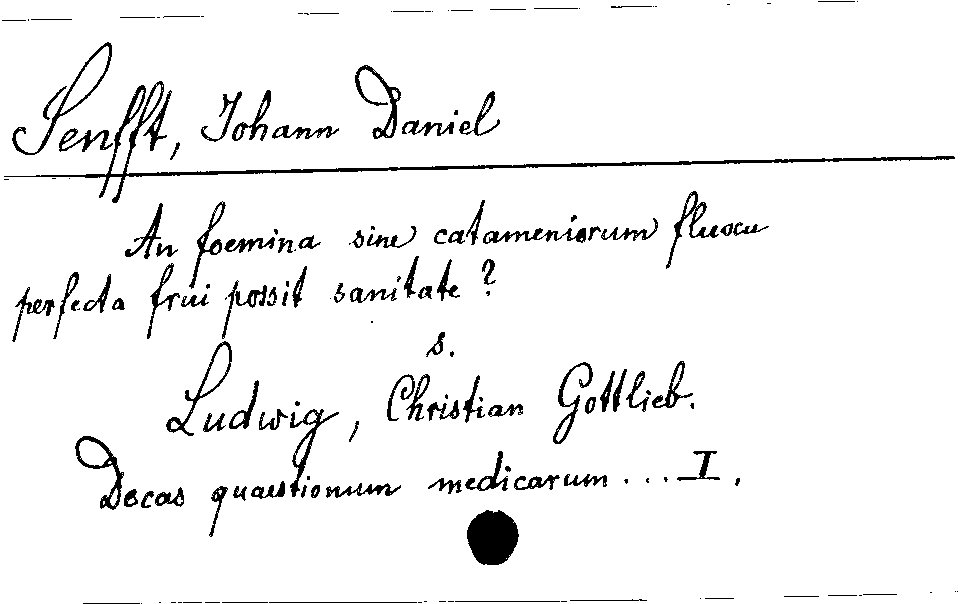 Senfft, Johann Daniel
An foemina sine catameniorum fluxu
perfecta frui possit sanitate?
s.
Ludwig, Christian Gottlieb.
Decas quaestionum medicarum ... I.